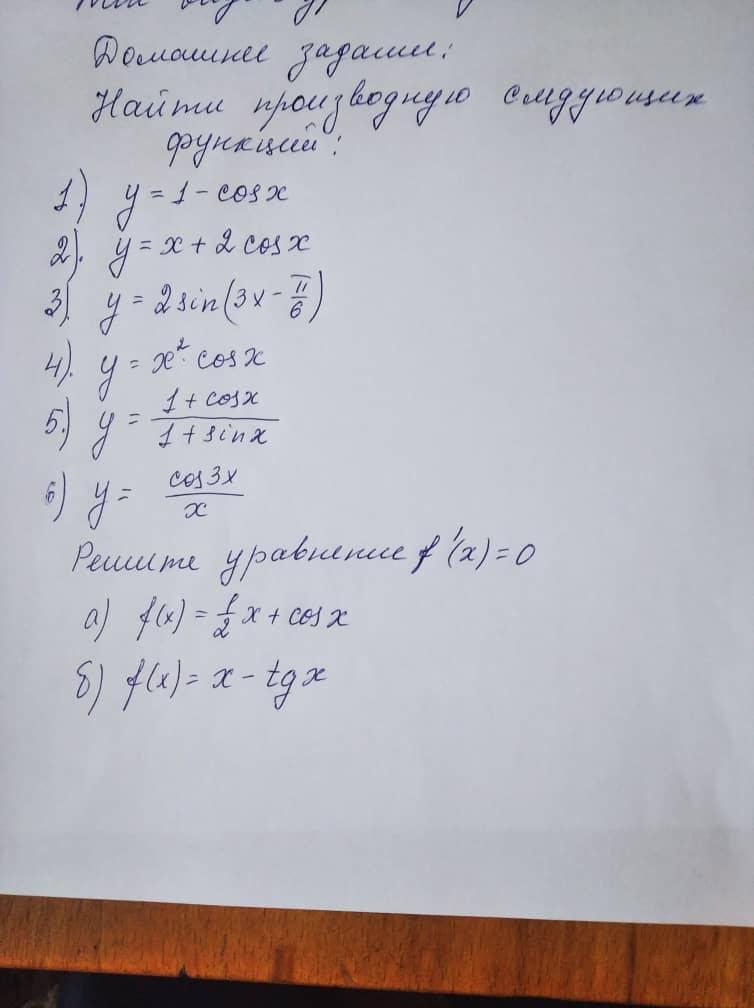 Домашнее задание:
Найти производную следующих
функций:
1.) y = 1 - cos x
2). y = x + 2 cos x
3). y = 2 sin (3x - π/6)
4). y = x². cos x
5.) y = (1 + cos x)/(1 + sin x)
6) y = cos 3x / x
Решите уравнение f'(x) = 0
а) f(x) = 1/2 x + cos x
б) f(x) = x - tg x